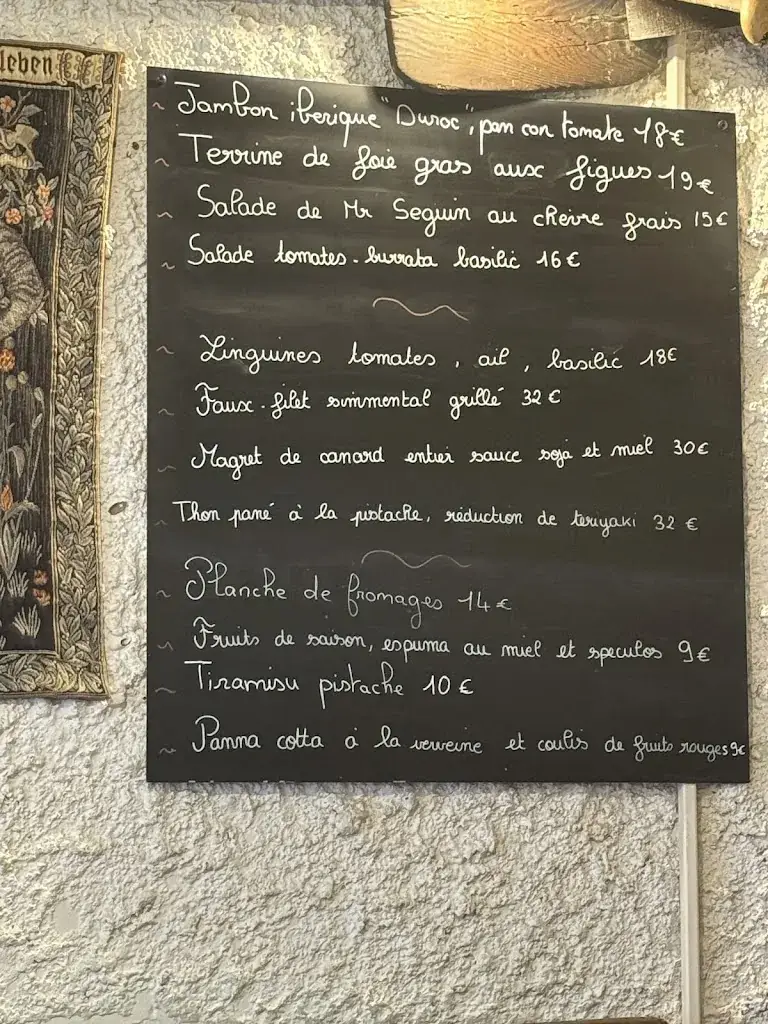 leben
~ Jambon iberique "Duroc", pan con tomate 18€
~ Terrine de foie gras aux figues 19€
~ Salade de Mr Seguin au chèvre frais 15€
~ Salade tomates - burrata basilic 16€
~ Linguines tomates, ail, basilic 18€
~ Faux-filet simmental grillé 32€
~ Magret de canard entier sauce soja et miel 30€
~ Thon pané à la pistache, réduction de teriyaki 32 €
~ Planche de fromages 14€
~ Fruits de saison, espuma au miel et speculos 9€
~ Tiramisu pistache 10€
~ Panna cotta à la verveine et coulis de fruits rouges 9€